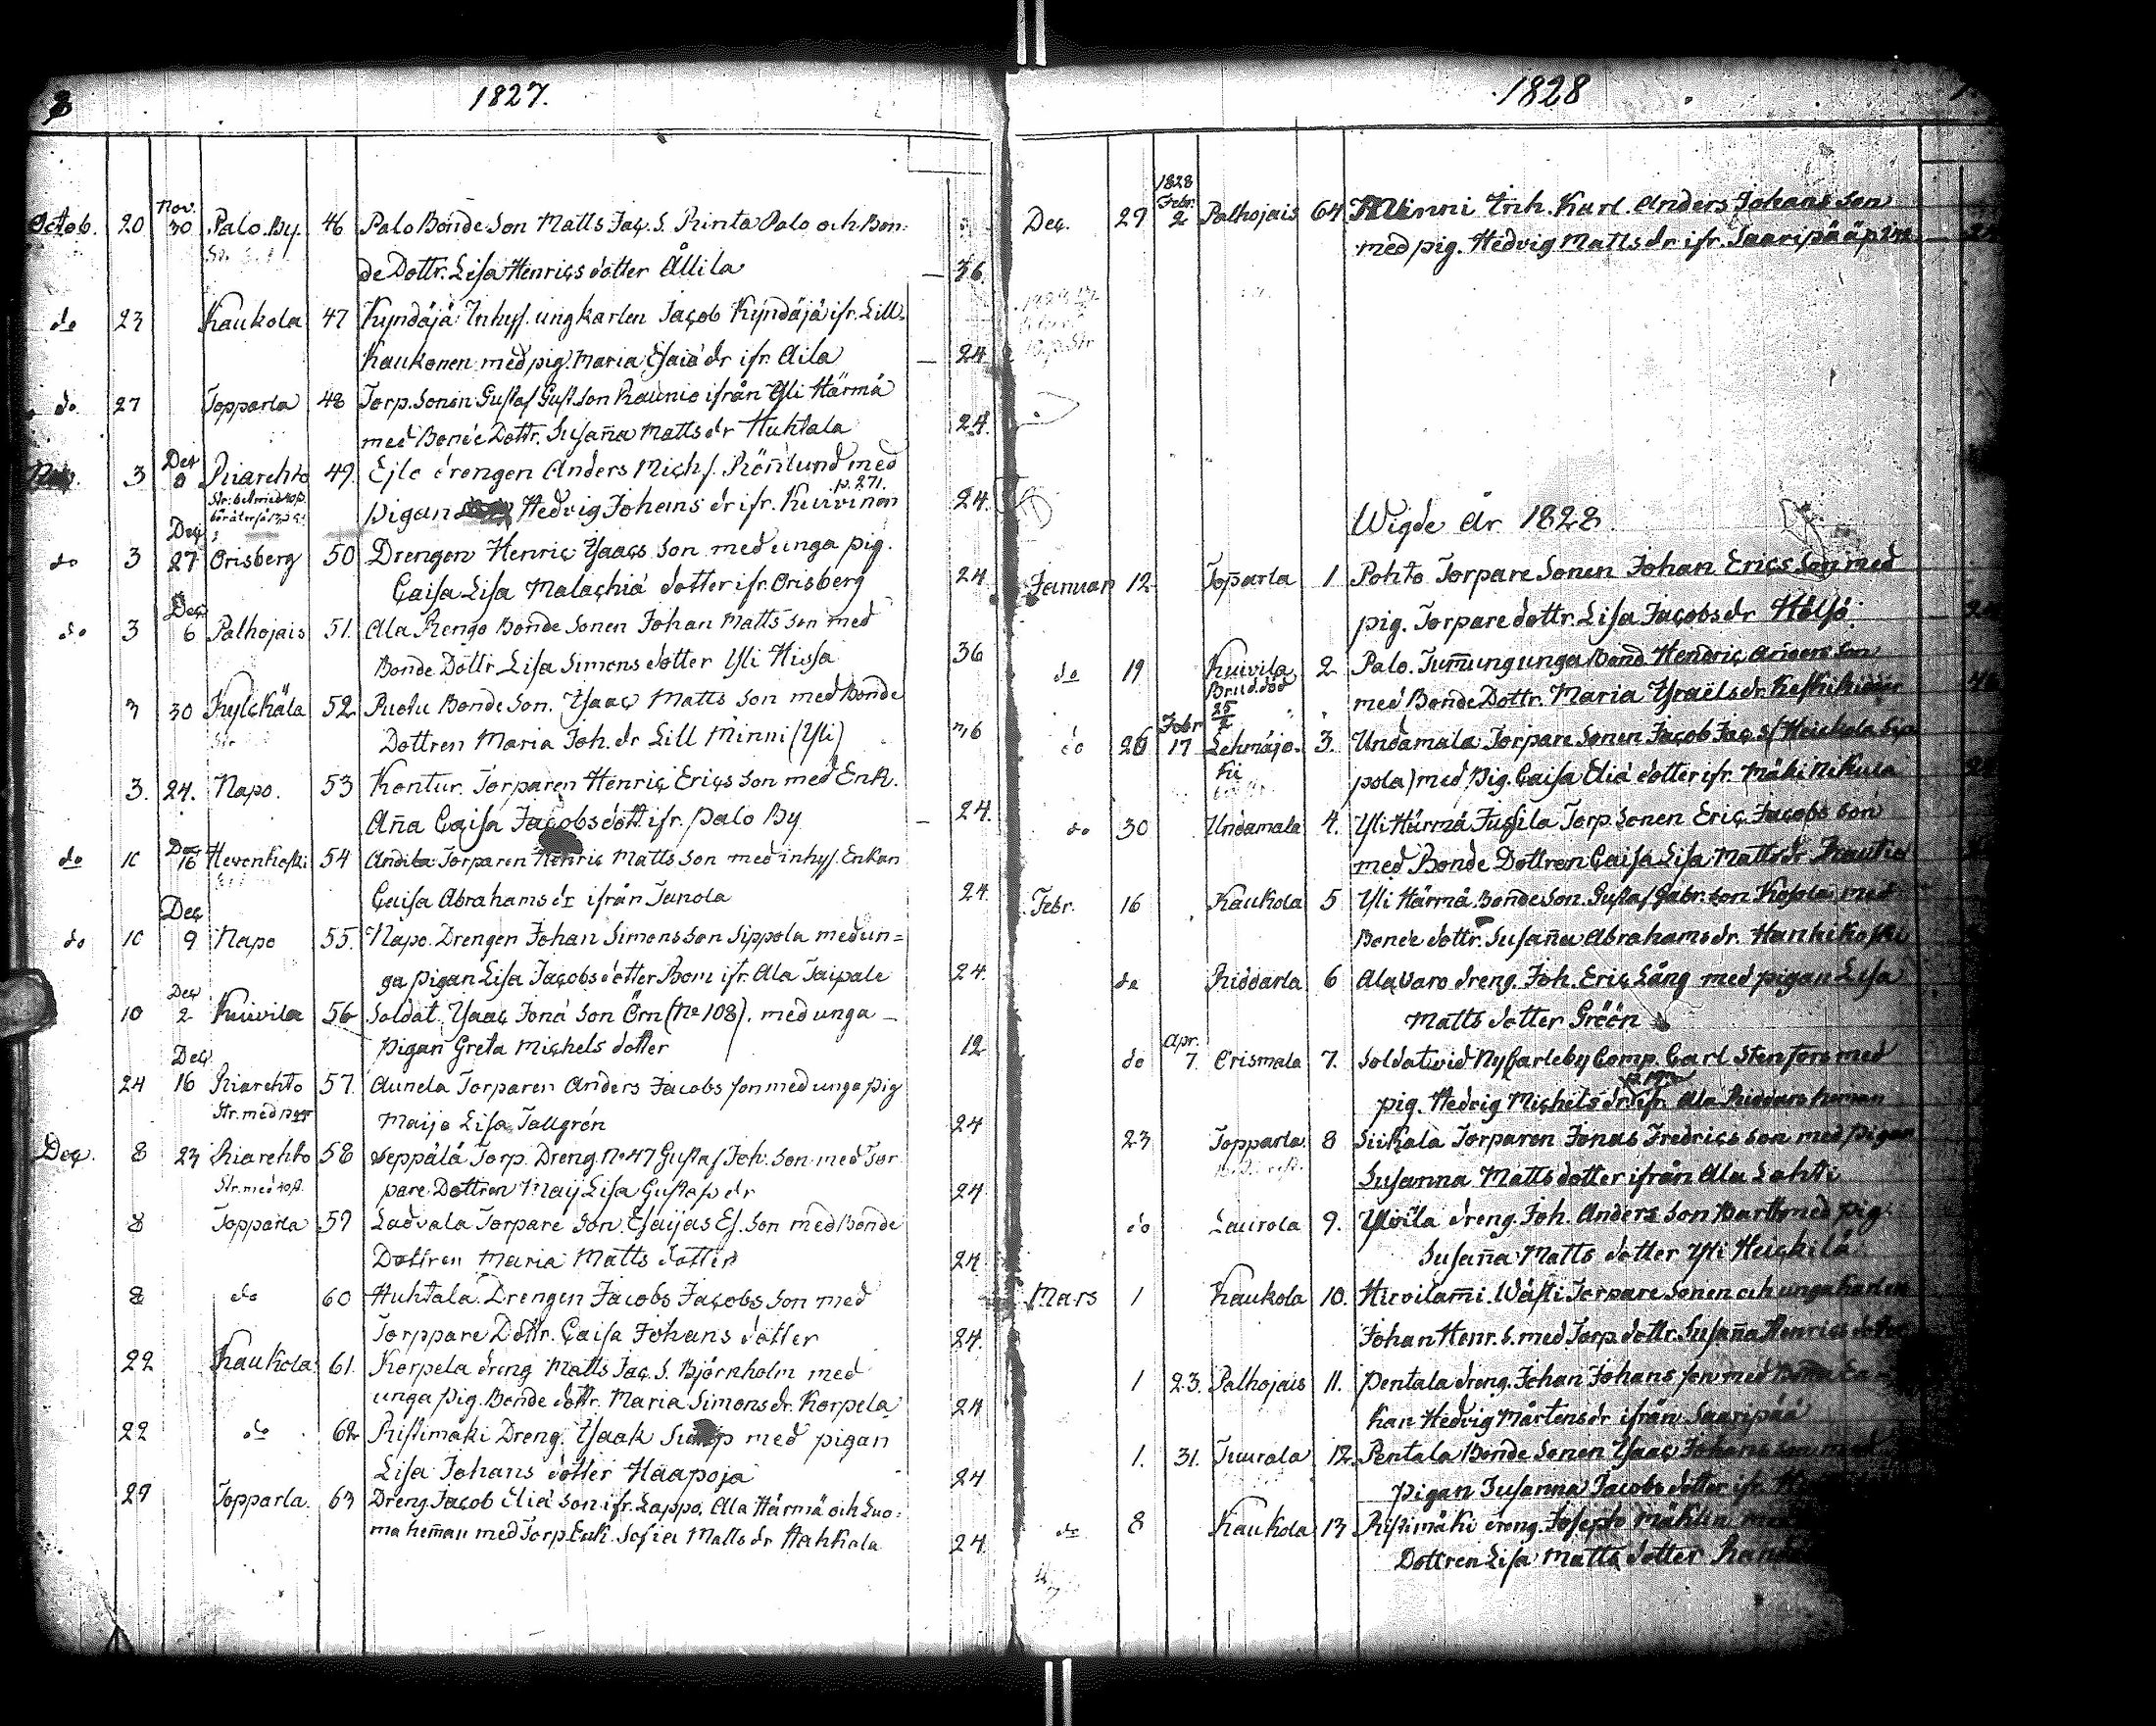 1827.
Octob. 20 Nov. 30 Palo By. 46 Palo Bonde Son Matts Jaç. S. Rinta Palo och Bon-
de Dottr. Lisa Henriçs dotter Ållila — 36.
do 23 Kaukola 47 Kyndäjä Inhyss. ungkarlen Jaçob Kyndäjä ifr. Lill-
Kaukonen med pig. Maria Esaiä dr ifr. Aila — 24.
do 27 Topparla 48 Torp. Sonen Gustaf Gust. Son Raunio ifrån Yli Härmä
med Bonde Dottr. Susaña Matts dr Huhtala 24.
3 Deç 9 Kiarehto 49. Ejlo drengen Anders Miçh s. Röñlund med
pigan Hedvig Johans dr ifr. Kuivinen p. 271. 24.
do 3 Deç 27 Orisberg 50 Drengen Henriç Ysaaçs Son med unga pig.
Çaisa Lisa Malaçhiä dotter ifr. Orisberg 24
do 3 Deç 6 Palhojais 51. Ala Rengo Bonde Sonen Johan Matts Son med
Bonde Dottr Lisa Simons dotter Yli Hissa 36
3 30 Kylçkäla 52 Bonde Son. Ysaaç Matts Son med Bonde
Dottren Maria Joh. dr Lill Minni (Yli) 36
3. 24. Napo. 53 Kontur. Torparen Henriç Eriçs Son med Enk.
Aña Çaisa Jaçobs dott. ifr. Palo By — 24.
do 10 Deç 16 Hevonkoski 54 Torparen Henriç Matts Son med inhys. Enkan
Çaisa Abrahams dr ifrån Tanola 24.
do 10 Deç 9 Napo 55. Napo Drengen Johan Simons Son Sippola med un=
ga pigan Lisa Jaçobs dotter Bom ifr. Ala Taipale 24.
10 Deç 2 Kuivila 56 Soldat. Ysaaç Jonä Son Örn (No 108). med unga —
Pigan Greta Miçhels dotter 12
24 Deç 16 Kiarehto 57. Aunela Torparen Anders Jacobs son med unga pig
Maija Lisa Tallgrén 24
Deç. 8 23 Kiarehto 58 Seppälä Torp. Dreng. No 47 Gustaf Joh. Son med Tor
pare Dottren Maij Lisa Gustafs dr 24
8 Topparla 59 Ladvala Torpare Son. Esaijas Es. Son med Bonde
Dottren Maria Matts dotter 24
8 do 60 Huhtala Drengen Jacobs Jaçobs Son med
Torppare Dottr. Çaisa Johans dotter 24.
22 Kaukola. 61. Korpela dreng Matts Jaç. S. Björnholm med
unga pig. Bonde dottr. Maria Simons dr. Korpela 24
22 do 62 Ristimäki Dreng. Ysaak med pigan
Lisa Johans dotter Haapoja 24
29 Topparla. 63 Dreng. Jaçob Eliä Son ifr. Lappo, Ala Härmä och Luo-
ma heman med Torp. Enk. Sofia Matts dr Hakkola 24.
1828
Deç. 29 1828 Febr. 2 Palhojais 64 Minni Inh. Karl. Anders Johans Son
med pig. Hedvig Matts dr ifr. Saaripää
Wigde År 1828.
Januar 12 Toparla 1 Pohto Torpare Sonen Johan Eriçs Son med
pig. Torpare dottr. Lisa Jaçobs dr Hölsö.
do 19 Kuivila 2 Palo. unga Bond. Hendriç Anders Son
med Bonde Dottr. Maria Ysraëls dr
do 26 Febr 17 Lehmäjoki 3. Undamala Torpare Sonen Jaçob Jaç. S. (Heickola Sip
pola) med Pig. Çaisa Eliä dotter ifr. Mäki Nikula
do 30 Undamala 4. Yli Härmä Jussila Torp. Sonen Eriç Jaçobs Son
med Bonde Dottren Çaisa Lisa Matts dr Rautio
Febr. 16 Kaukola 5 Yli Härmä Bonde Son. Gustaf Gabr. Son Kosola med
Bonde dottr. Susaña Abrahams dr. Hanhikoski
do Riddarla 6 Ala Varo dreng. Joh. Eriç Lång med pigan Lisa
Matts dotter Gröön
do Apr. 7. Orismala 7. Soldat vid NyÇarleby Comp. Çarl Stenfors med
pig. Hedvig Miçhels dr ifr. Ala Riddaro heman
23 Topparla. 8 Siikala Torparen Jonas Fredriçs Son med Pigan
Susanna Matts dotter ifrån Ala Lahti
do Laurola 9. dreng. Joh. Anders Son Bartt med pig.
Susaña Matts dotter Yli Heickilä
Mars 1 Kaukola 10. Hirvilami. Wästi Torpare Sonen och unga karlen
Johan Henr. S. med Torp. dottr. Susaña Henrics dotter
1 23. Palhojais 11. Pentala dreng. Johan Johans son med Bonde En
kan Hedvig Mårtens dr ifrån Saaripää
1. 31. Tuurala 12 Pentala Bonde Sonen Ysaaç Johans Son med
pigan Susanna Jacobs dotter ifr.
do 8 Kaukola 13 Ristimäki dreng. Joseph Mäklin med
Dottren Lisa Matts dotter